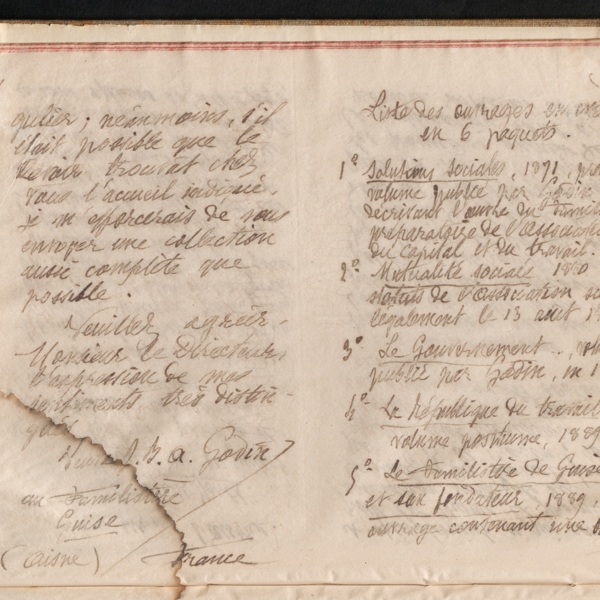 gulier; néanmoins, s'il
était possible que le
Devoir trouvât chez
vous l'accueil indiqué,
je m'efforcerais de vous
envoyer une collection
aussi complète que
possible.
Veuillez agréer,
Monsieur le Directeur,
l'expression de mes
sentiments très distin-
gués
Veuve J. B. A. Godin
au Familistère
Guise
(Aisne) France
Liste des ouvrages
en 6 paquets.
1° Solutions sociales, 1871,
volume publié par Godin
décrivant l'œuvre du Famil
préparatoire de l'associa
du capital et du travail.
2° Mutualité sociale 1880
statuts de l'association
légalement le 13 août 1
3° Le Gouvernement..,
publié par Godin, en 1
4° La République du travail
volume posthume, 1889
5° Le Familistère de Guise
et son fondateur, 1889,
ouvrage contenant une